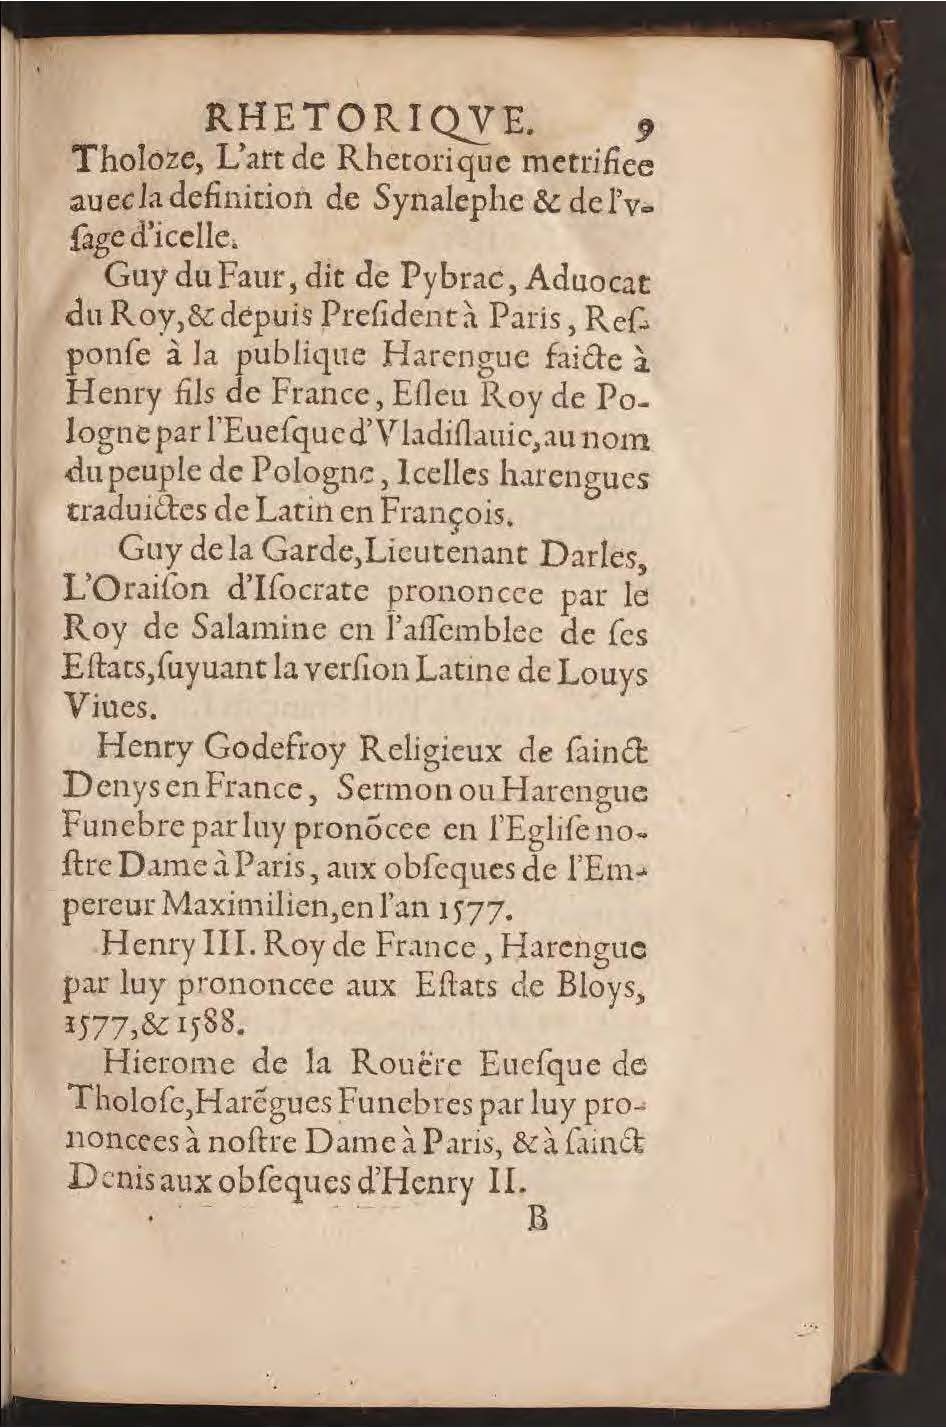 RHETORIQVE. 9
Tholoze, L'art de Rhetorique metrifiee
auec la definition de Synalephe & de l'v-
ſage d'icelle.
Guy du Faur, dit de Pybrac, Aduocat
du Roy, & depuis Preſident à Paris, Reſ-
ponſe à la publique Harengue faicte à
Henry fils de France, Eſleu Roy de Po-
logne par l'Eueſque d'Vladiſlauie, au nom
du peuple de Pologne, Icelles harengues
traduictes de Latin en François.
Guy de la Garde, Lieutenant Darles,
L'Oraiſon d'Iſocrate prononcee par le
Roy de Salamine en l'aſſemblee de ſes
Eſtats, ſuyuant la verſion Latine de Louys
Viues.
Henry Godefroy Religieux de ſainct
Denys en France, Sermon ou Harengue
Funebre par luy pronõcee en l'Egliſe no-
ſtre Dame à Paris, aux obſeques de l'Em-
pereur Maximilien, en l'an 1577.
Henry III. Roy de France, Harengue
par luy prononcee aux Eſtats de Bloys,
1577, & 1588.
Hierome de la Rouëre Eueſque de
Tholoſe, Harẽgues Funebres par luy pro-
noncees à noſtre Dame à Paris, & à ſainct
Denis aux obſeques d'Henry II.
B